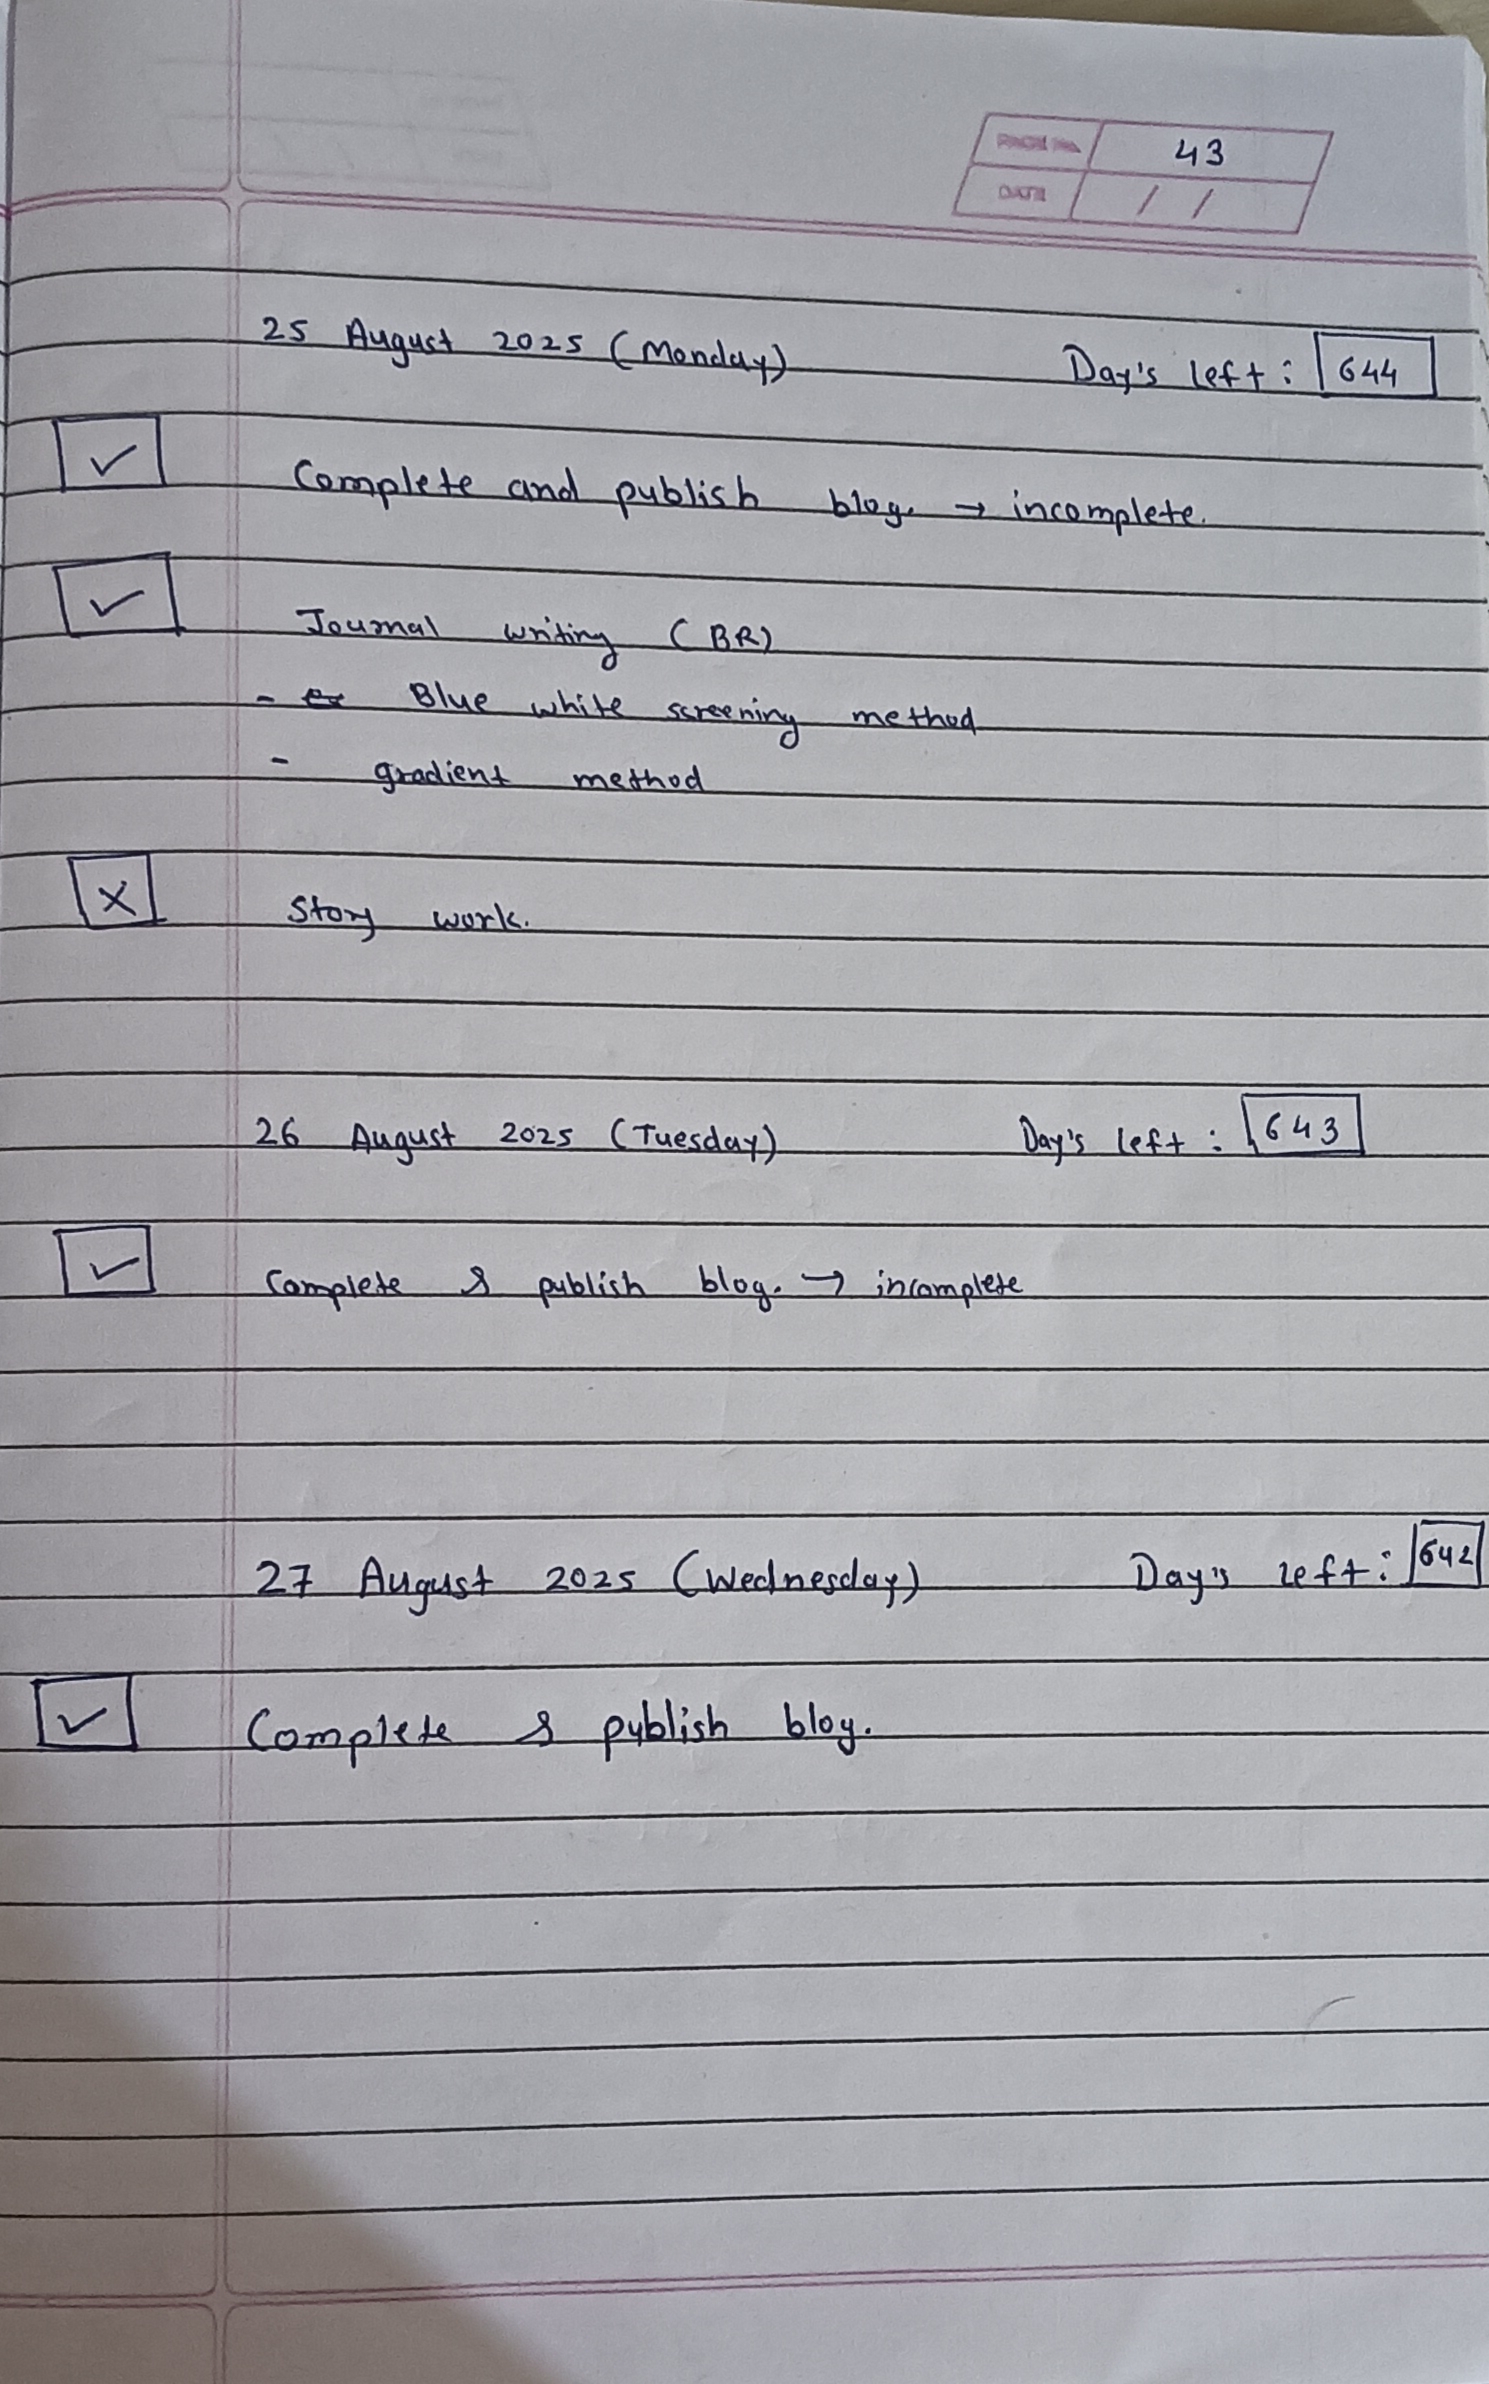 PAGE No. 43
DATE / /
25 August 2025 (Monday) Day's left : 644
✓ Complete and publish blog. → incomplete.
✓ Journal writing (BR)
- Blue white screening method
- gradient method
X Story work.
26 August 2025 (Tuesday) Day's left : 643
✓ Complete & publish blog. → incomplete
27 August 2025 (Wednesday) Day's left : 642
✓ Complete & publish blog.